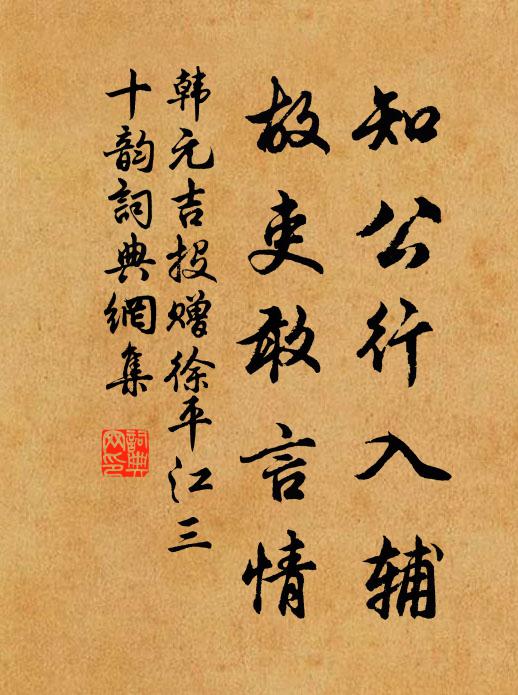 知公行入辅
故吏敢言情
韩元吉投赠徐平江三
十韵詞典網集
詞典
网印